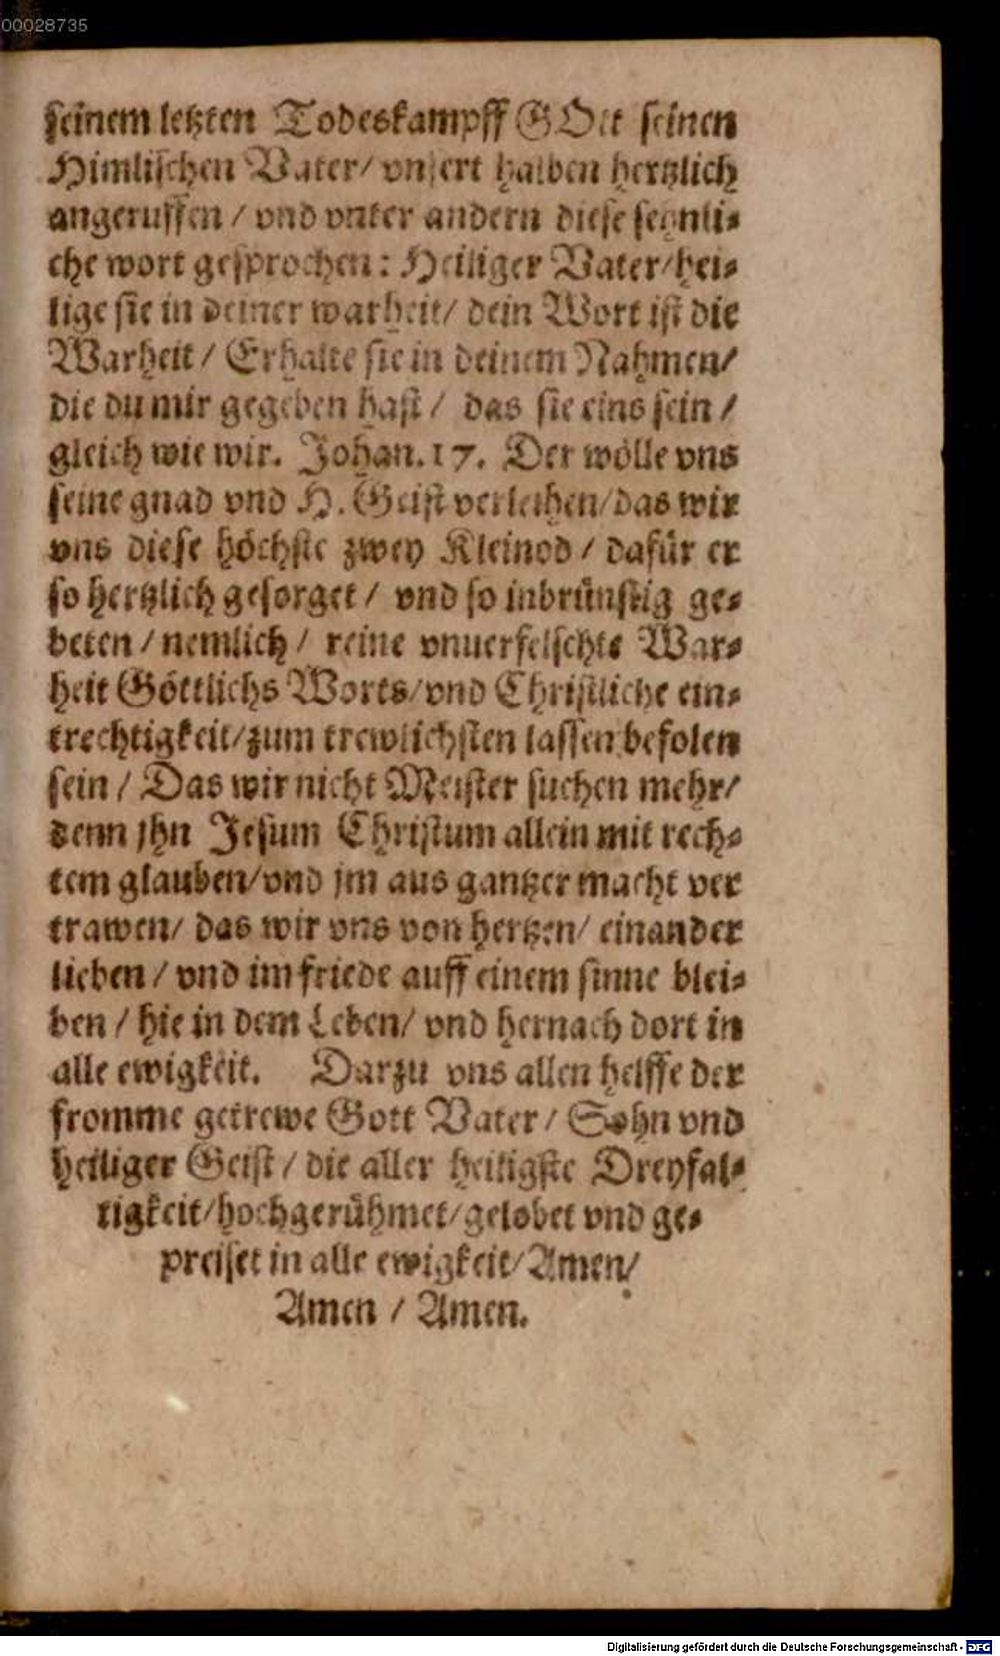 00028735
seinem letzten Todeskampff GOtt seinen
Himlischen Vater/ vnsert halben hertzlich
angeruffen / vnd vnter andern diese sehnli-
che wort gesprochen: Heiliger Vater/hei-
lige sie in deiner warheit/ dein Wort ist die
Warheit / Erhalte sie in deinem Nahmen/
die du mir gegeben hast / das sie eins sein /
gleich wie wir. Johan. 17. Der wölle vns
seine gnad vnd H. Geist verleihen/das wir
vns diese höchste zwey Kleinod / dafür er
so hertzlich gesorget / vnd so inbrünstig ge-
beten / nemlich / reine vnuerfelschte War-
heit Göttlichs Worts/vnd Christliche ein-
trechtigkeit/zum trewlichsten lassen befolen
sein / Das wir nicht Meister suchen mehr/
denn jhn Jesum Christum allein mit rech-
tem glauben/vnd jm aus gantzer macht ver
trawen/ das wir vns von hertzen/ einander
lieben / vnd im friede auff einem sinne blei-
ben / hie in dem Leben/ vnd hernach dort in
alle ewigkeit. Darzu vns allen helffe der
fromme getrewe Gott Vater / Sohn vnd
heiliger Geist / die aller heiligste Dreyfal-
tigkeit/hochgerühmet/gelobet vnd ge-
preiset in alle ewigkeit/Amen/
Amen / Amen.
Digitalisierung gefördert durch die Deutsche Forschungsgemeinschaft - DFG